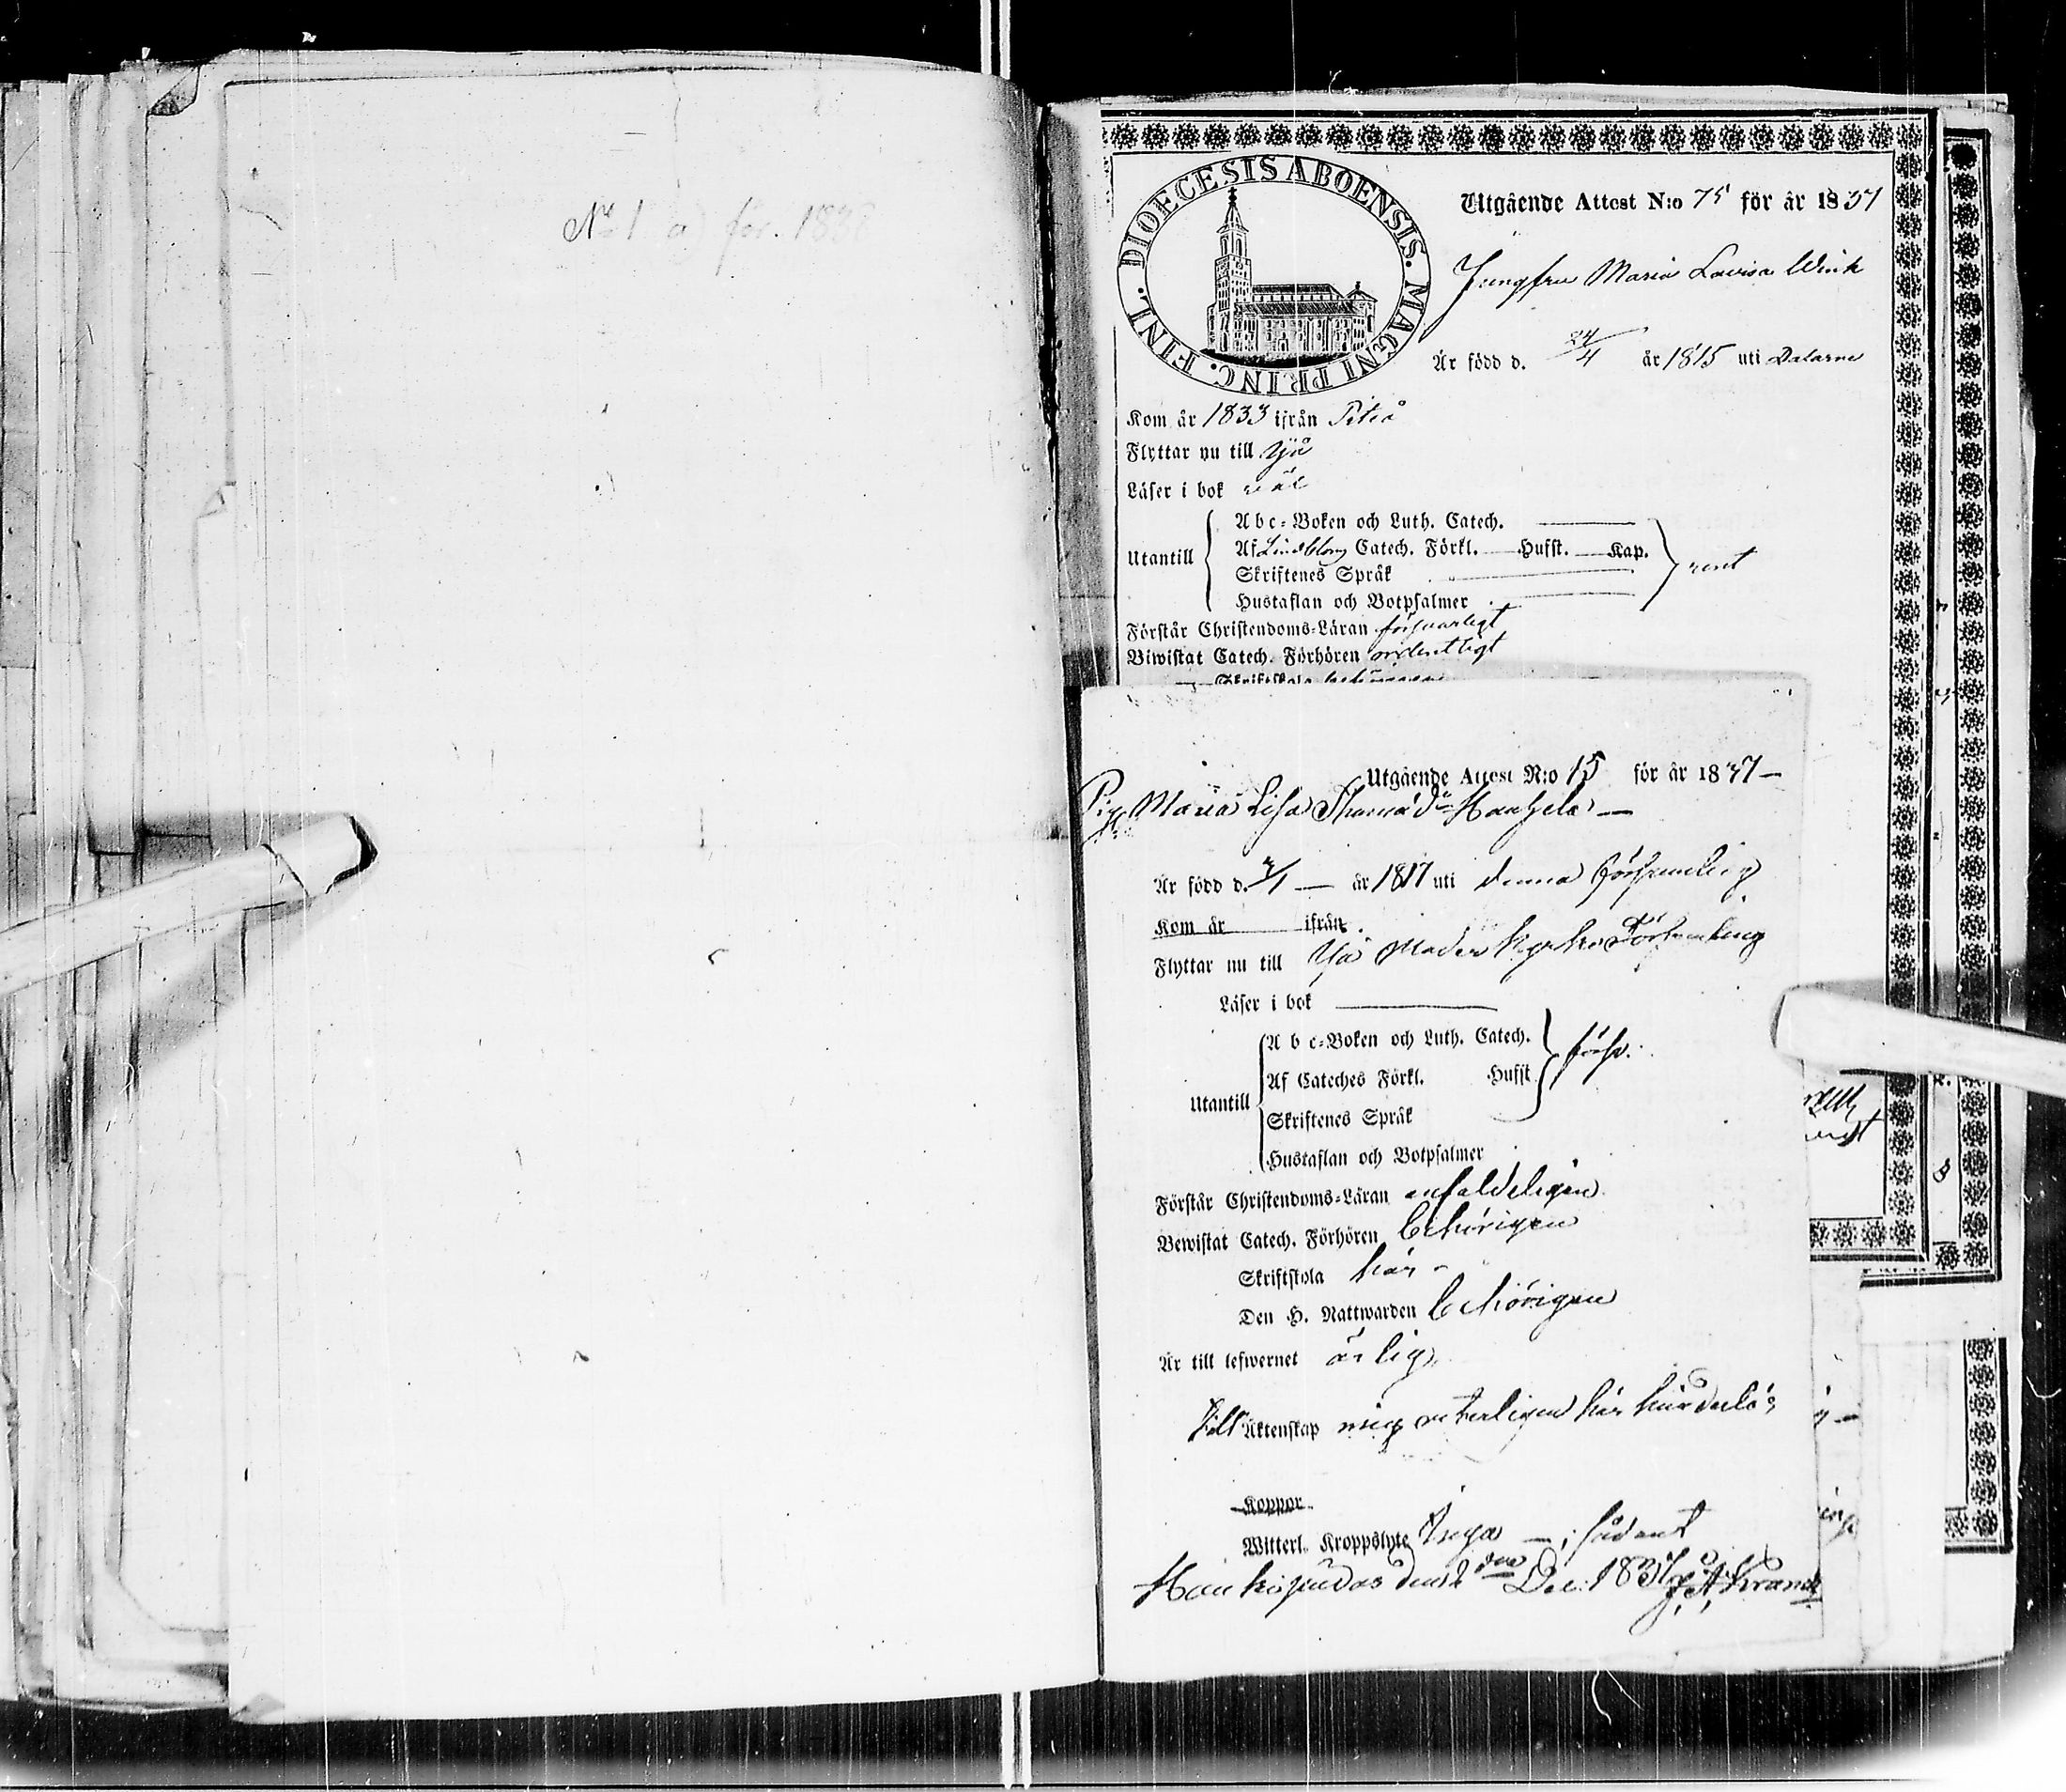 No 1 a) för. 1838
DIOECESIS ABOENSIS. MAGNI PRINC. FINL.
Utgående Attest N:o 75 för år 1837
Jungfru Maria Lovisa Wink
Är född d. 24/4 år 1815 uti Dalarne
Kom år 1833 ifrån Piteå
Flyttar nu till Ijå
Läser i bok väl
Utantill
Abc-Boken och Luth. Catech.
Af Lindbloms Catech. Förkl. Hufst. Kap.
Skriftenes Språk
Hustaflan och Botpsalmer
rent
Förstår Christendoms-Läran försvarligt
Biwistat Catech. Förhören ordentligt
Skriftskola
Utgående Attest N:o 15 för år 1837
Pig. Maria Lisa Thomäd:r
Är född d. år 1817 uti denna Församling
Kom år ifrån
Flyttar nu till Ijå Moder kyrko Församling
Läser i bok
Utantill
A b c-Boken och Luth. Catech.
Af Cateches Förkl. Hufst
Skriftenes Språk
Hustaflan och Botpsalmer
förs.
Förstår Christendoms-Läran enfaldeligen
Bewistat Catech. Förhören behörigen
Skriftskola här
Den H. Nattwarden behörigen
Är till lefwernet ärlig
Till Äktenskap mig veterligen här hinderlös
Koppor
Witterl. Kroppslyte Inga sådant
Haukipudas den 2 dra Dec. 1837